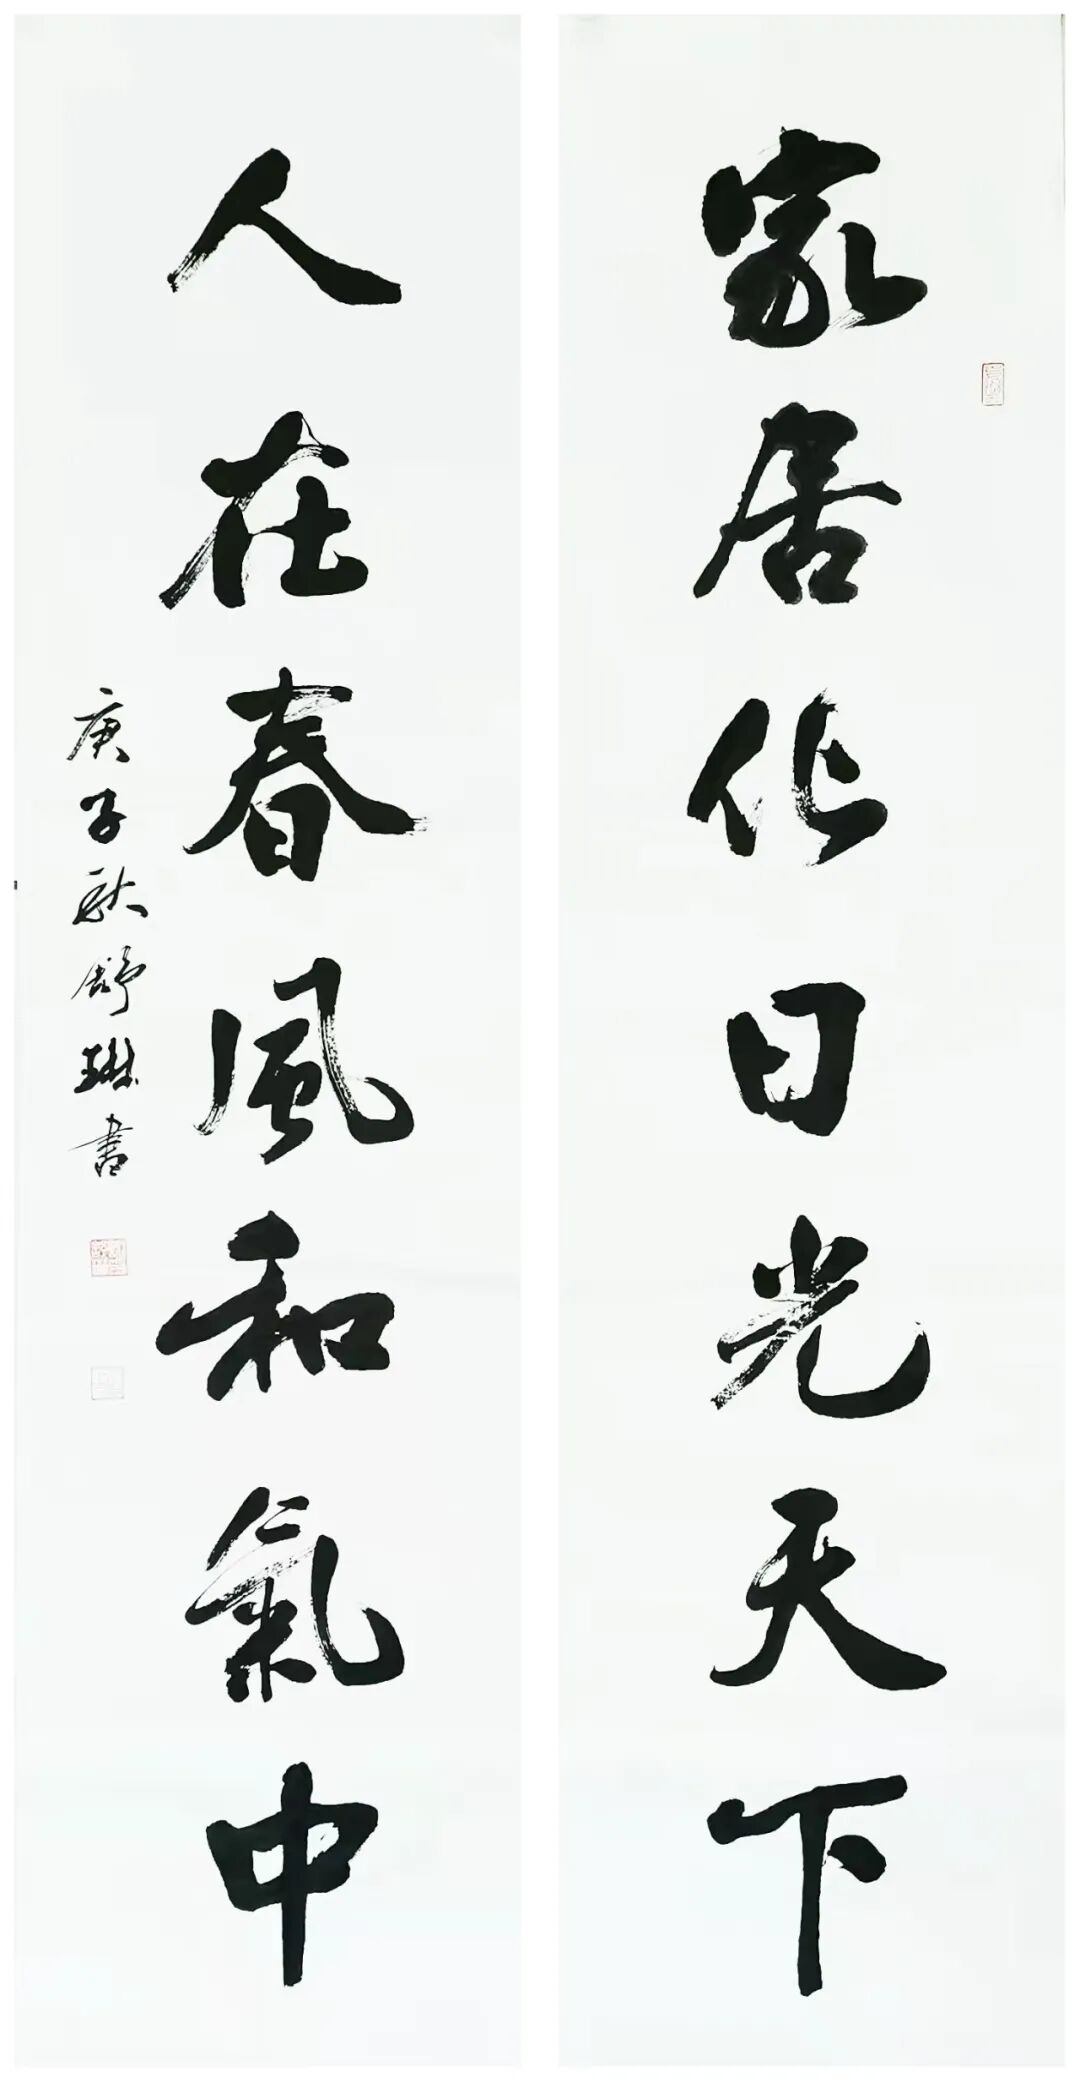 家居化日光天下
人在春風和氣中
庚子秋舒琳書